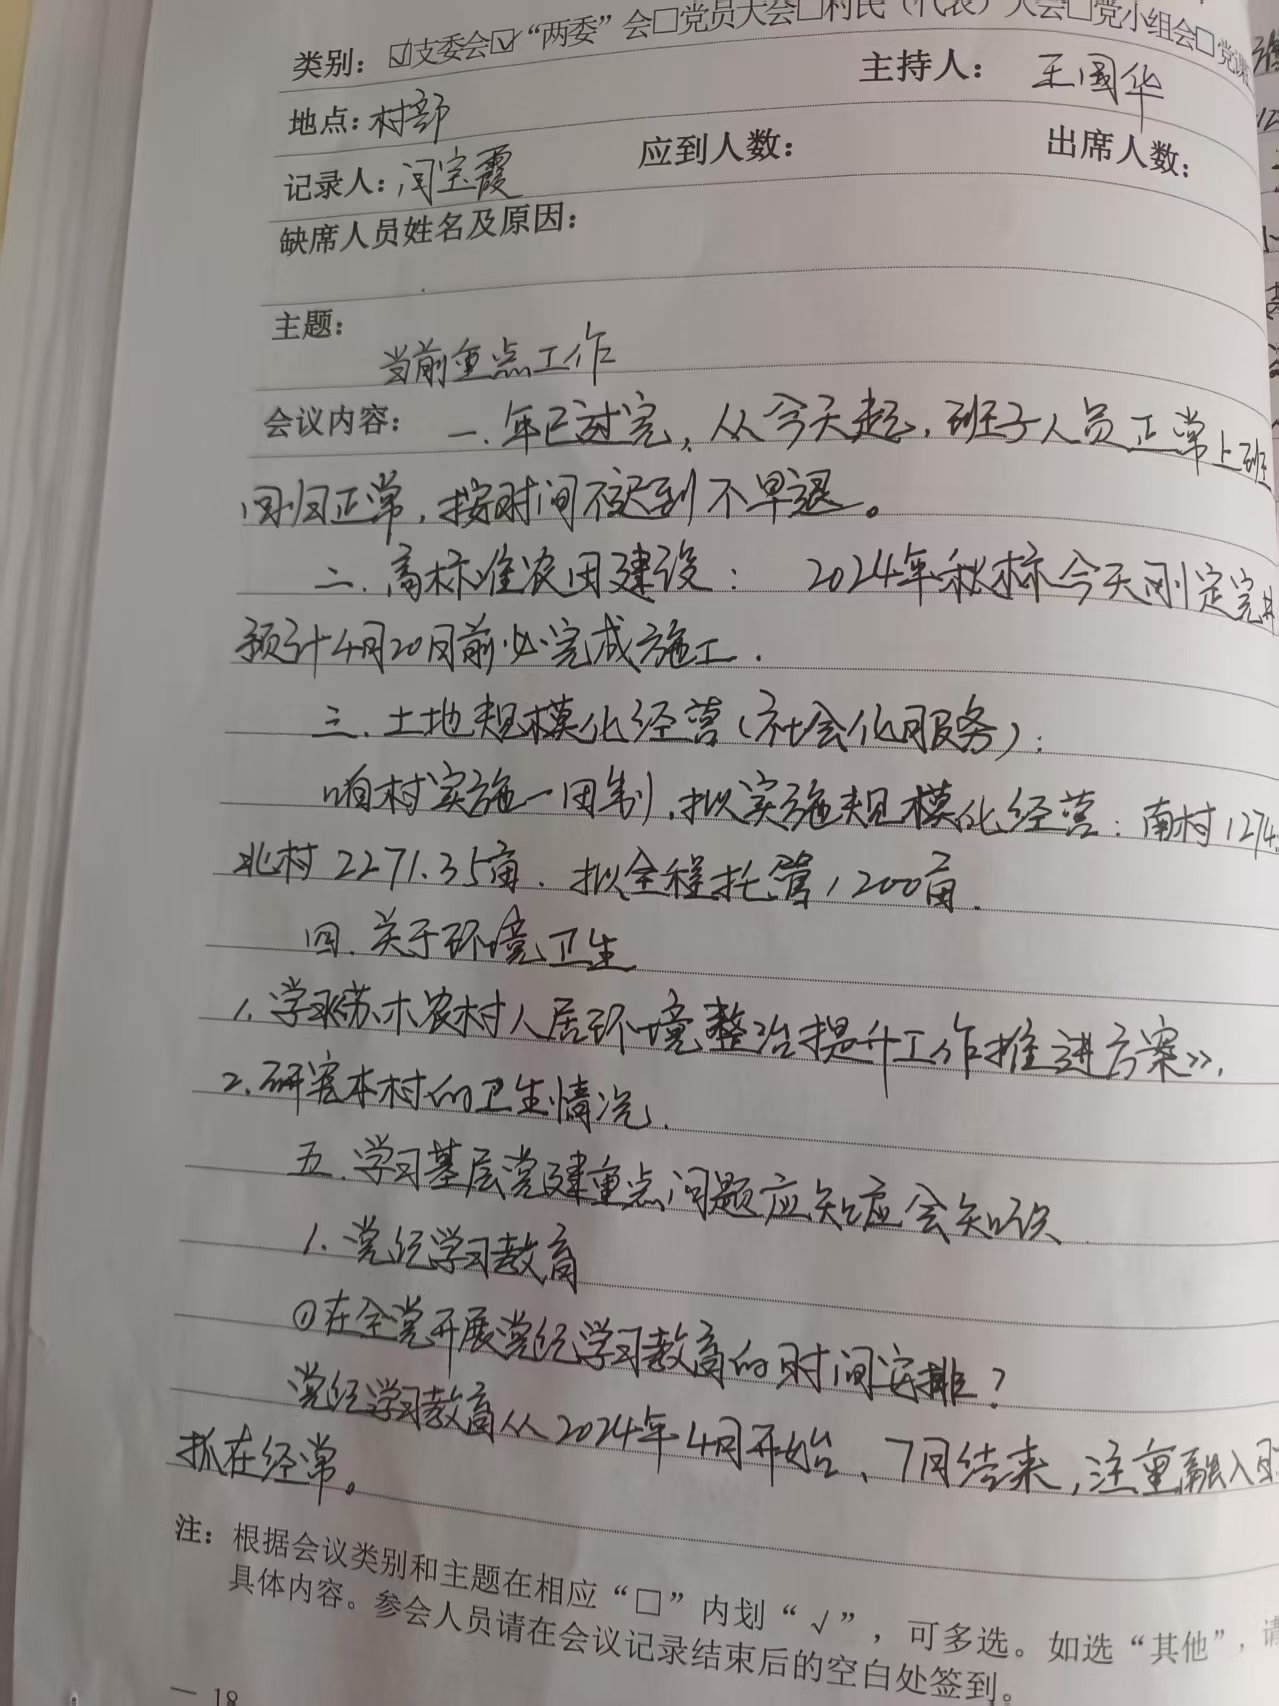 类别：☑支委会☑“两委”会□党员大会□村民（代表）大会□党小组会□党课
地点：村部 主持人：王国华
记录人：闫宝霞 应到人数： 出席人数：
缺席人员姓名及原因：
主题：
当前重点工作
会议内容： 一、年已过完，从今天起，班子人员正常上班
回归正常，按时间不迟到不早退。
二、高标准农田建设： 2024年秋标今天刚定完
预计4月20日前必完成施工．
三、土地规模化经营（社会化服务）：
咱村实施一田制，拟实施规模化经营：南村1274
北村2271.35亩．拟全程托管1200亩．
四、关于环境卫生
1、学习《苏木农村人居环境整治提升工作推进方案》．
2、研害本村的卫生情况．
五、学习基层党建重点问题应知应会知识
1．党纪学习教育
①在全党开展党纪学习教育的时间安排？
党纪学习教育从2024年4月开始、7月结束，注重融入日
抓在经常。
注：根据会议类别和主题在相应“□”内划“√”，可多选。如选“其他”，请
具体内容。参会人员请在会议记录结束后的空白处签到。
— 18